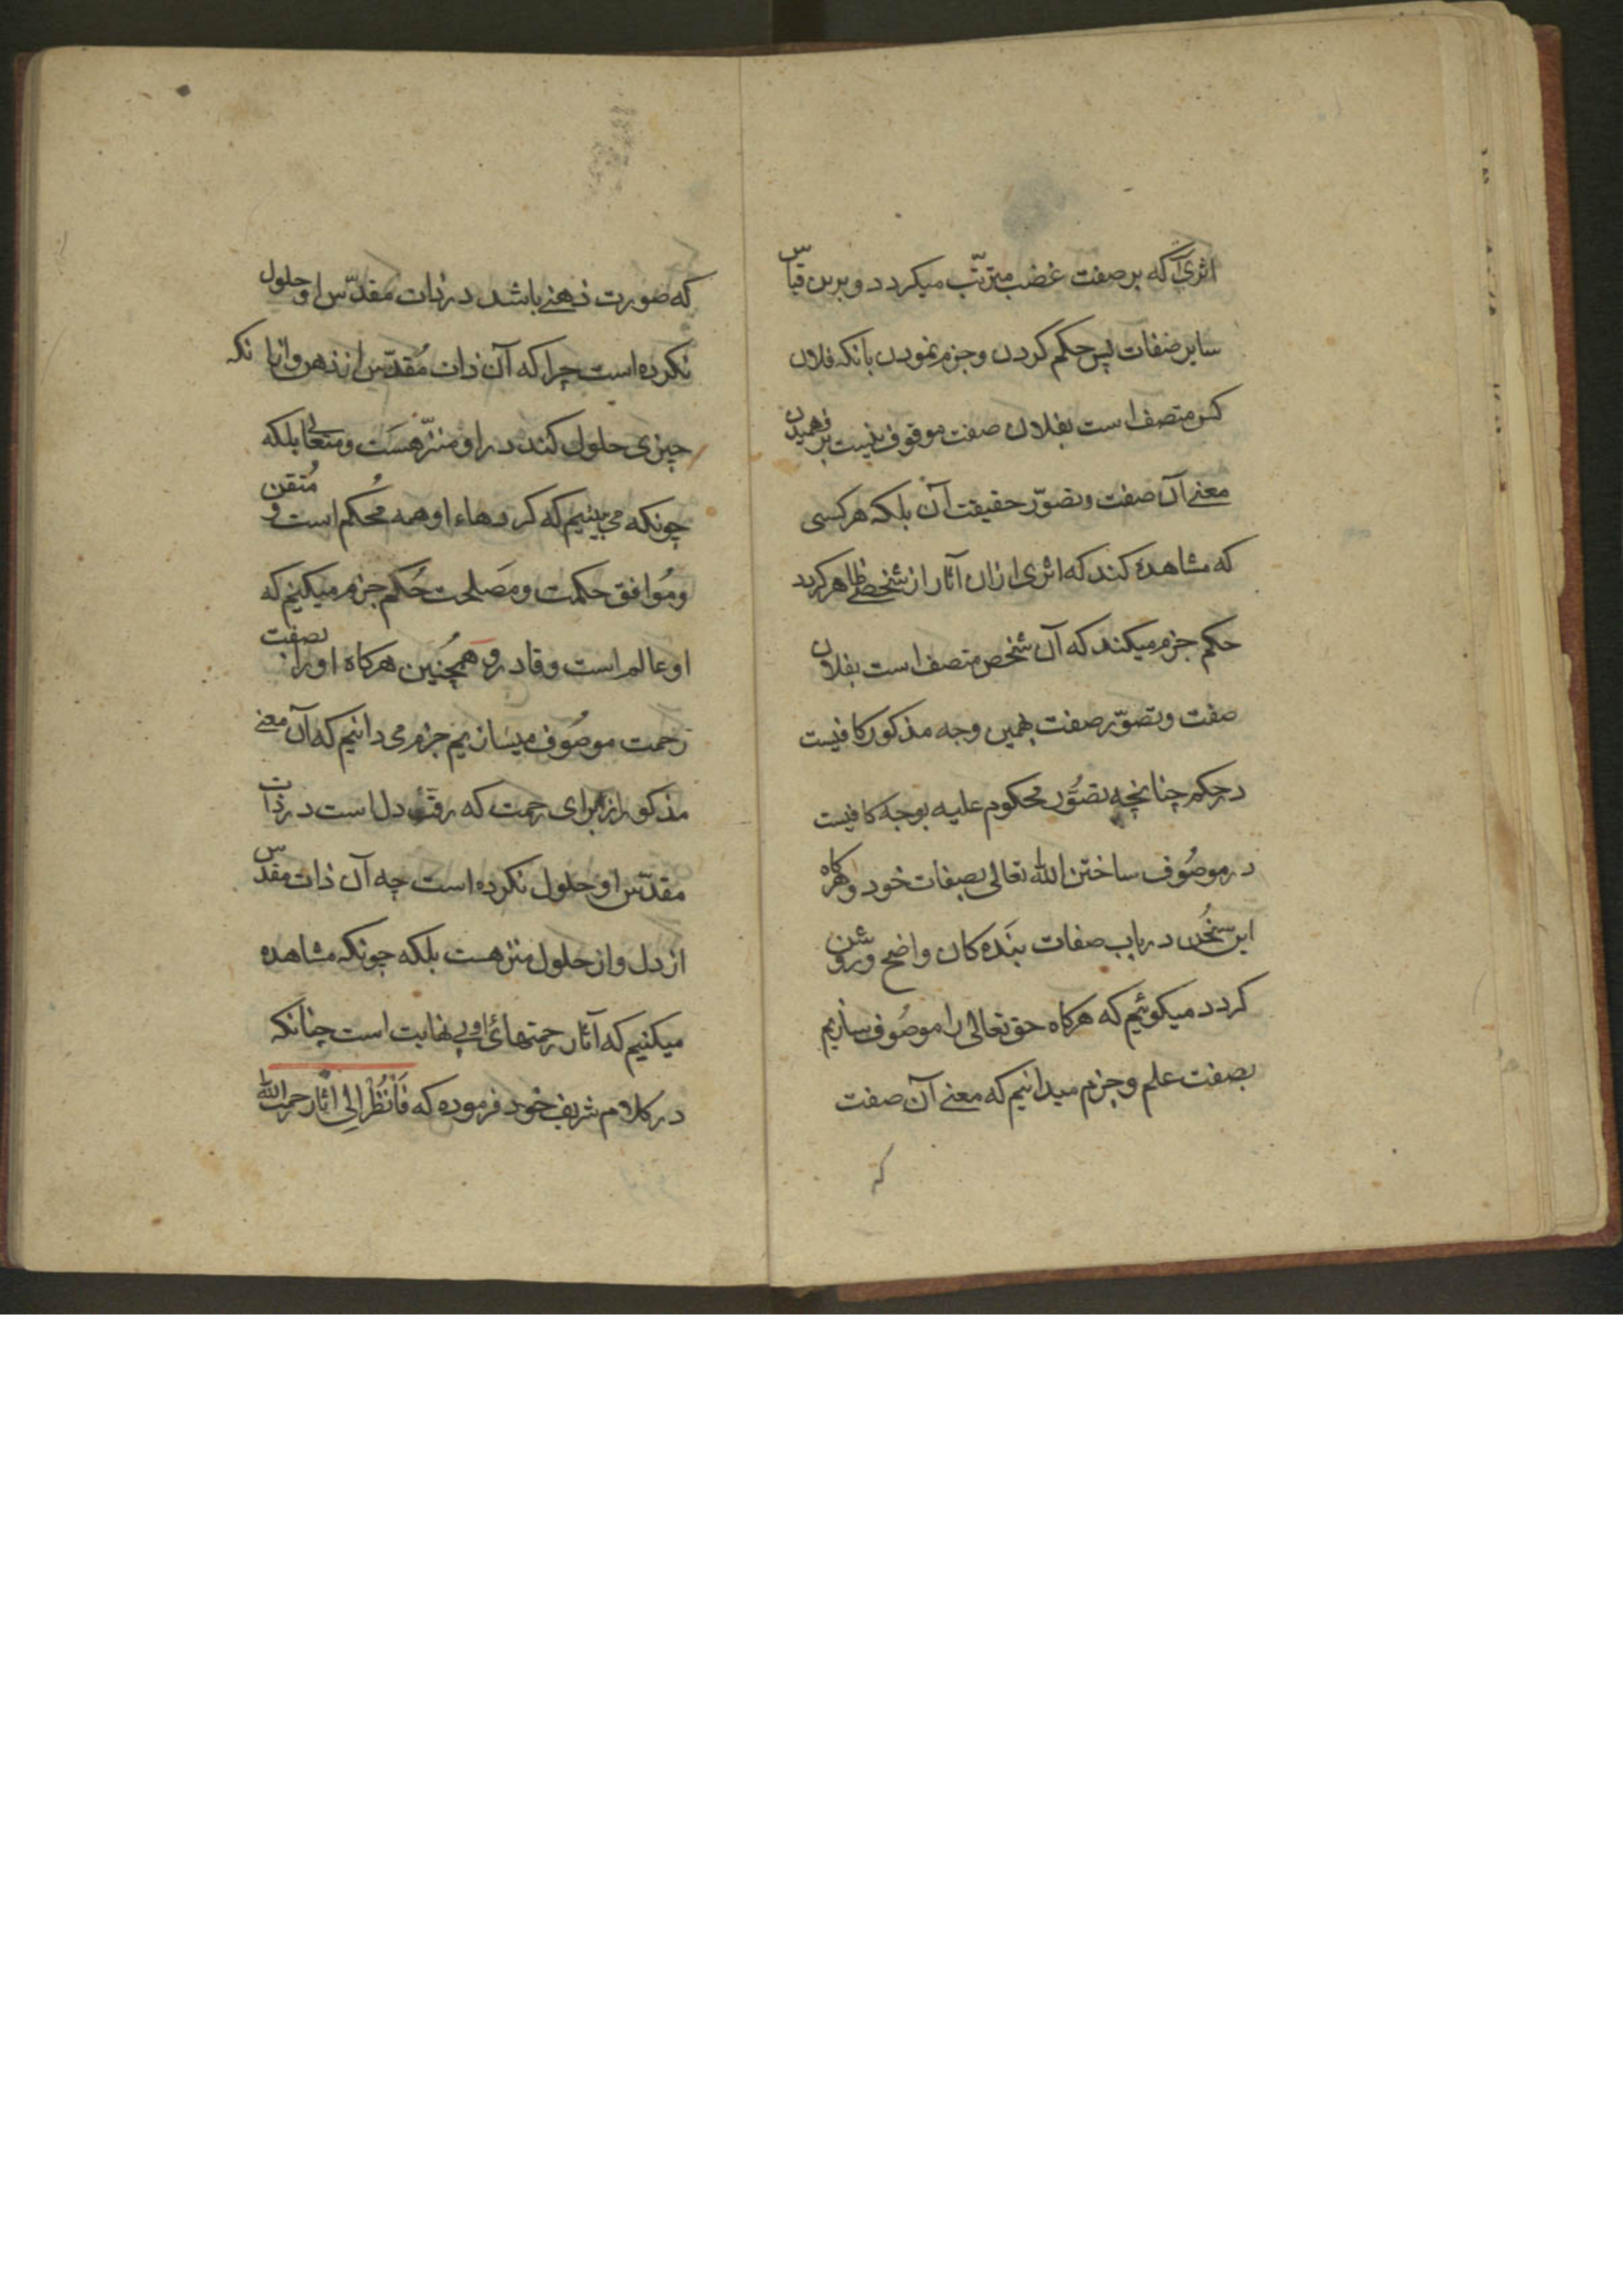 اثریکه بر صفت غضب مترتّب میکردد و برین قیاس
سایر صفات پس حکم کردن و جزم نمودن بانکه فلان
کس متصف است بفلان صفت موقوف نیست بر فهمیدن
معنے آن صفت و تصوّر حقیقت آن بلکه هر کسی
که مشاهده کند که اثری ازان آثار از شخصے ظاهر کردد
حکم جزم میکند که آن شخص متصف است بفلان
صفت و تصوّر صفت بهمین وجه مذکور کافیست
در حکم چنانچه تصوُّر محکوم علیه بوجه کافیست
در موصُوف ساختن الله تعالی بصفات خود و هرکاه
این سخُن در باب صفات بنَده کان واضح و روشن
کردد میکوئیم که هرکاه حق تعالی را موصُوف سازیم
بصفت علم و جزم میدانیم که معنے آن صفت
که
که صورت ذهنے باشد در ذات مقدّس او حلول
نکرده است چرا که آن ذات مُقدّس از ذهن و ازانکه
چیزی حلول کند در او منزّهست و متعالی بلکه
چونکه می بینیم که کردهاء او همه مُحکم است و مُتقن
و مُوافق حکمت و مَصلحت حُکم جزم میکنیم که
او عالم است و قادر و همچُنین هرکاه او را بصفت
رحمت موصُوف میسازیم جزم می دانیم که آن معنے
مذکور از برای رحمت که رقّت دل است در ذات
مقدّس او حلول نکرده است چه آن ذات مقدس
از دل و از حلول منزهست بلکه چونکه مشاهده
میکنیم که آثار رحمتهائ او بی نهایت است چنانکه
در کلام شریف خود فرموده که فَانْظُرْ الِی اثار رحمت الله